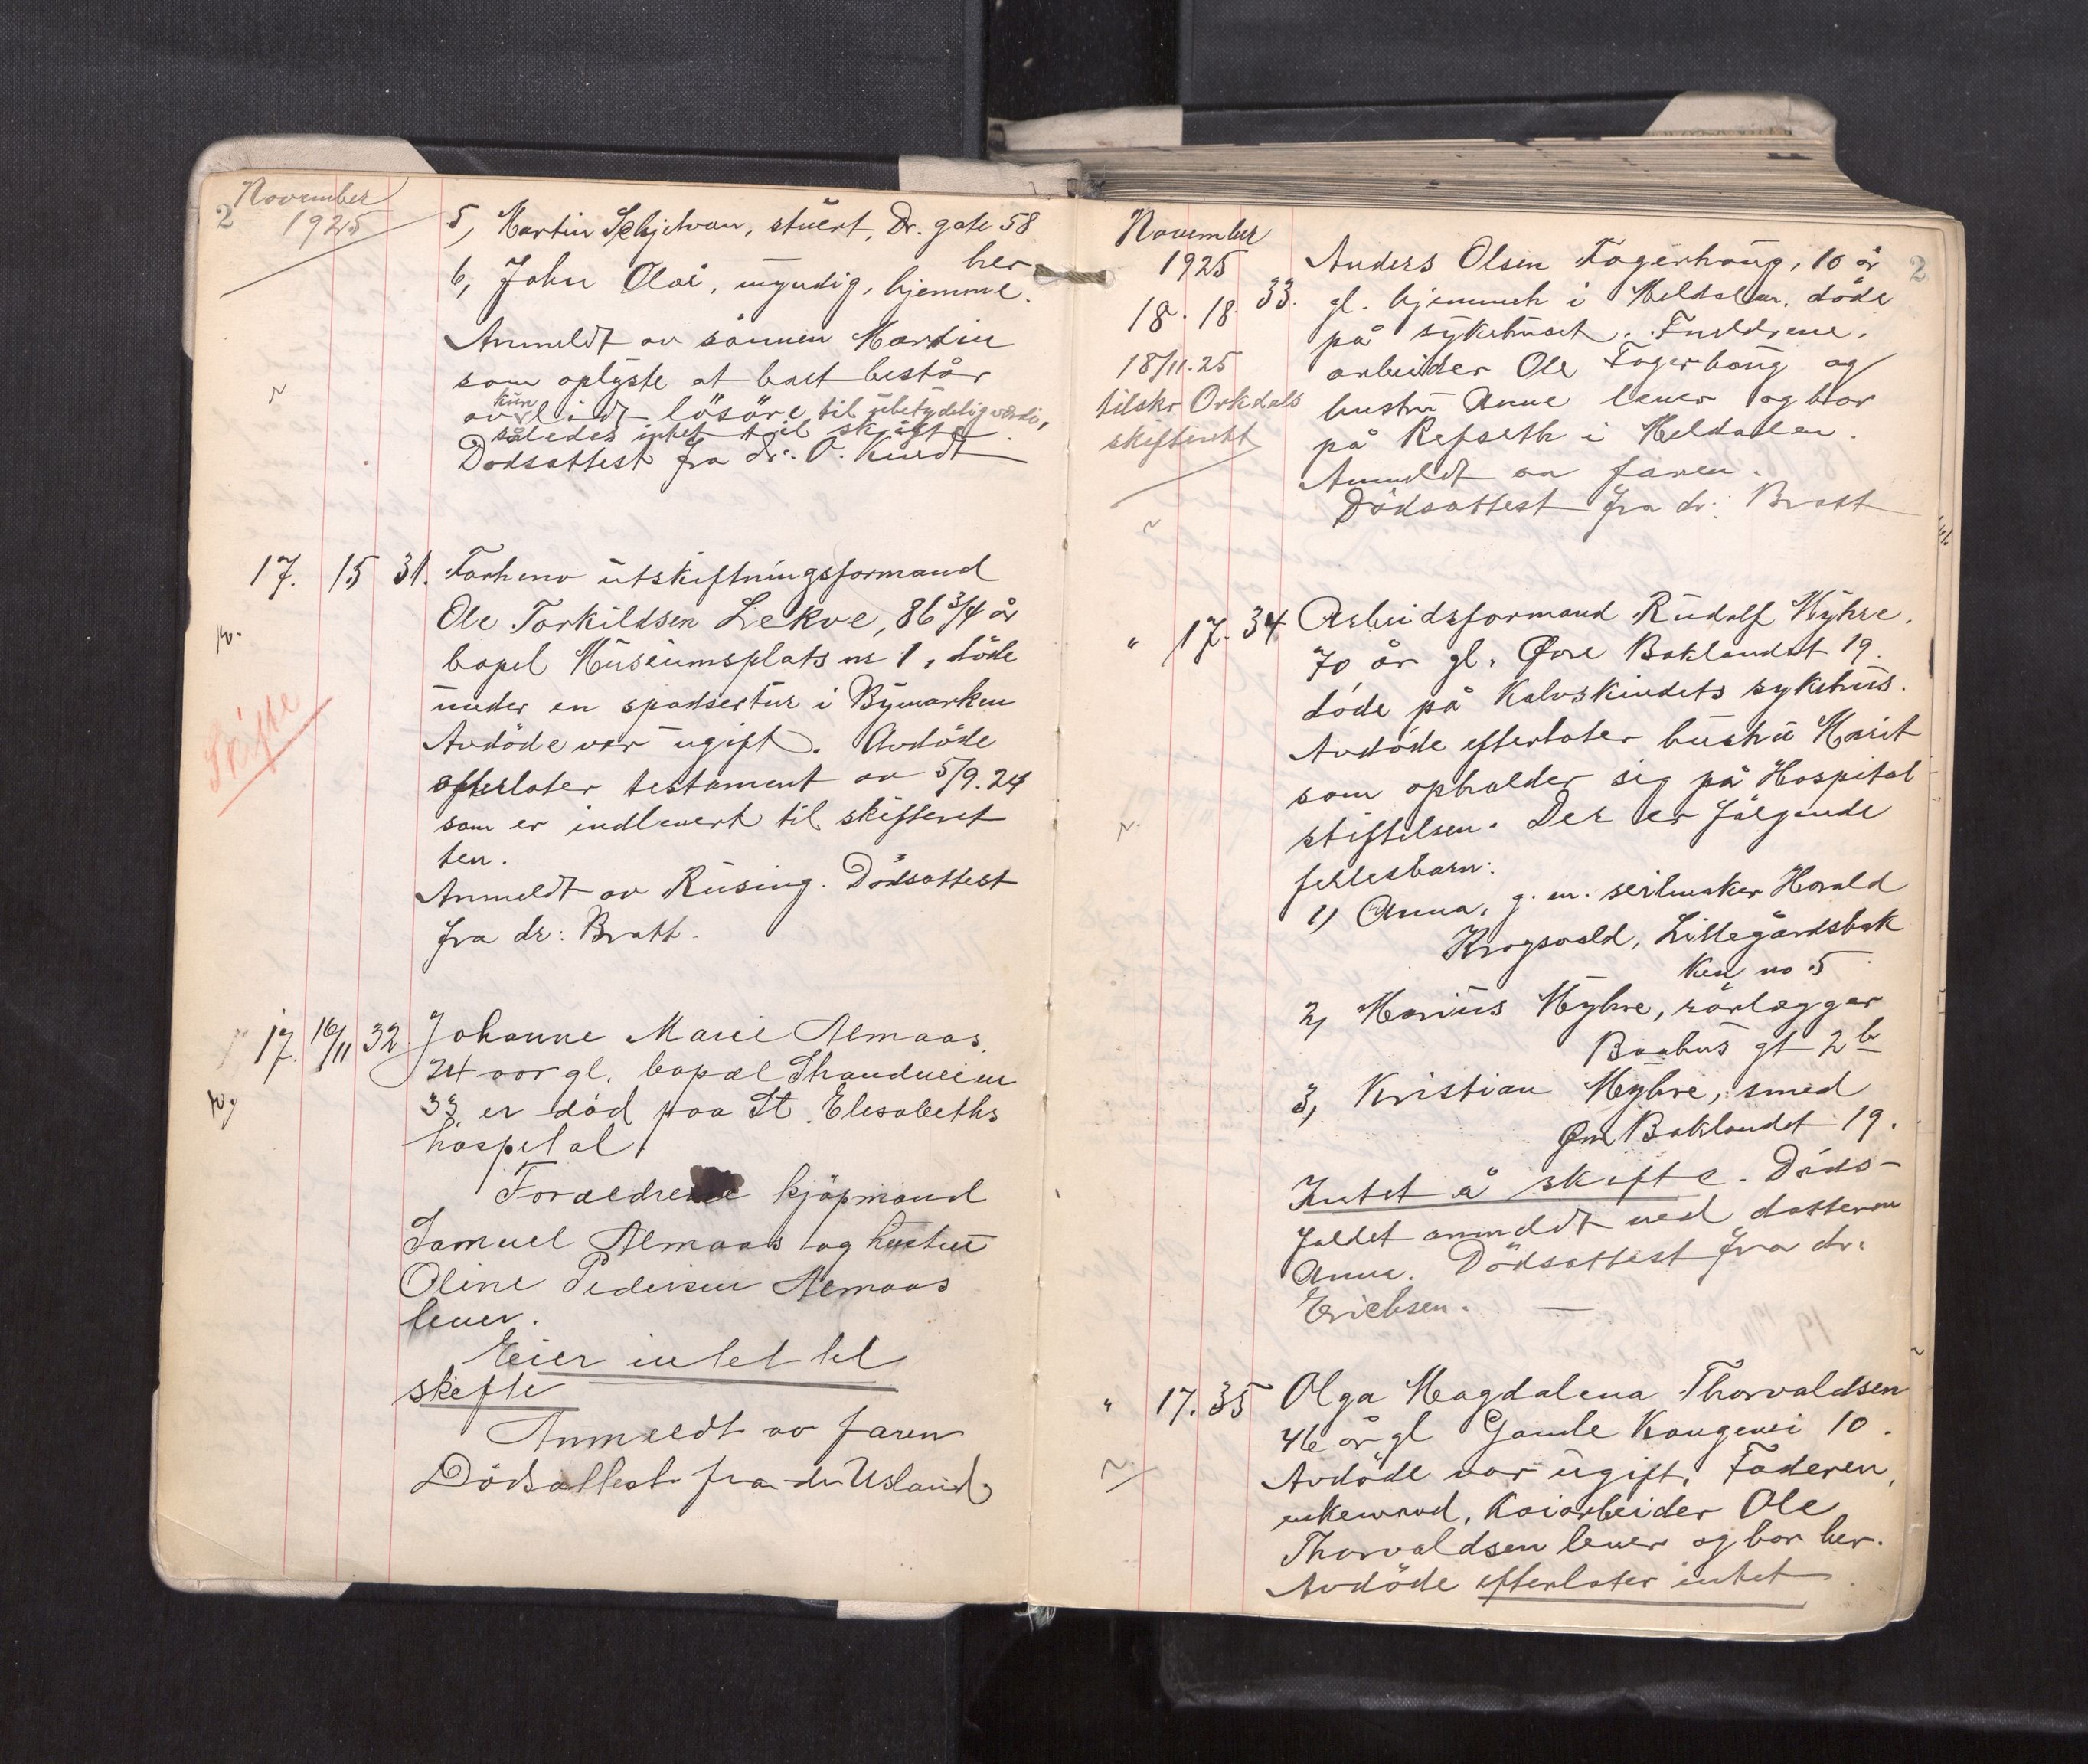 November
2
1925
5, Martin Schjelvan, stuert, Dr. gate 58
6, John Olai, myndig, hjemme.
her
Anmeldt av sønnen Martin
som oplyste at boet består
kun
av lidt løsøre til ubetydelig værdi,
således intet til skifte.
Dødsattest fra dr. O. Kindt
17. 15 31. Forhenv utskiftningsformand
Ole Torkildsen Lekve, 86 3/4 år
bopel Museumsplats nr 1, døde
under en spadsertur i Bymarken
Avdøde var ugift. Avdøde
efterlater testament av 5/9.24
som er indlevert til skifteret
ten.
Skifte
Anmeldt av Rusing. Dødsattest
fra dr: Bratt.
17. 16/11 32. Johanne Marie Almaas,
24 aar gl. bopæl Thonduveien
33 er död paa St. Elesabeths
hospital.
Forældrene kjöpmand
Samuel Almaas og hustru
Oline Pedersen Almaas
lever.
Eier intet til
skefte
Anmeldt av faren
Dödsattest fra dr Usland
November
1925
2
18. 18. 33. Anders Olsen Fagerhaug, 10 år
gl. hjemmeh i Meldalen, døde
på sykehuset. Foreldrene,
18/11.25
tilskr Orkdals
skifterett
arbeider Ole Fagerhaug og
hustru Anne lever og bor
på Refseth i Meldalen.
Anmeldt av faren.
Dødsattest fra dr: Bratt
" 17. 34 Arbeidsformand Rudolf Myhre,
70 år gl. Øvre Baklandet 19.
døde på Kalvskindets sykehus.
Avdøde efterlater hustru Marit
som opholder sig på Hospital
stiftelsen. Der er følgende
fellesbarn:
1, Anna, g. m. seilmaker Harald
Krogsvald, Lillegårdsbak
ken no 5
2, Marius Myhre, rørlægger
Baahus gt 2b
3, Kristian Myhre, smed
Øvre Baklandet 19.
Intet å skifte. Døds-
faldet anmeldt ved datteren
Anna. Dødsattest fra dr.
Erichsen.
" 17. 35 Olga Magdalena Thorvaldsen
46 år gl Gamle Kongevei 10.
Avdøde var ugift. Faderen,
enkemand, kaiarbeider Ole
Thorvaldsen lever og bor her.
Avdøde efterlater intet